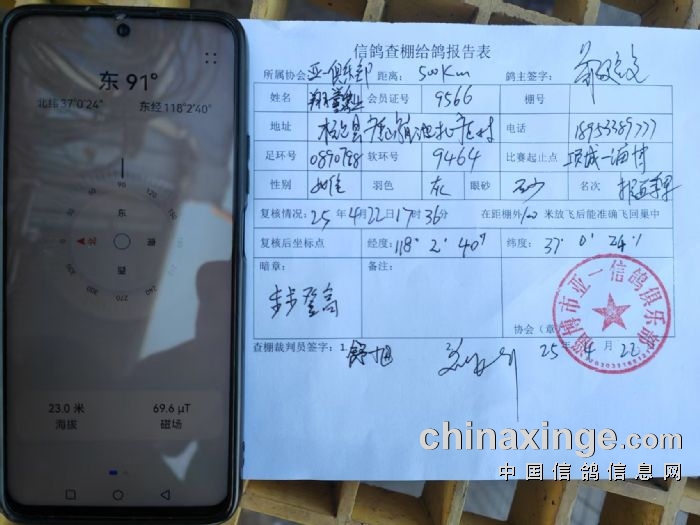 东 91°
北纬 37°0′24″ 东经 118°2′40″
90
120
60
150
30
东
180
0
北
南
210
330
西
240
300
270
23.0 米
69.6 μT
海拔
磁场
信鸽查棚给鸽报告表
所属协会:亚一俱乐部 距离:500Km 鸽主签字:
姓名 会员证号 9566 棚号
地址 桓台县 电话 18953389777
足环号 0890788 软环号 9464 比赛起止点 项城—淄博
性别 雌 羽色 灰 眼砂 砂 名次 报到
复核情况:25年4月22日17时36分 在距棚外100米放飞后能准确飞回巢中
复核后坐标点 经度:118°2′40″ 纬度:37°0′24″
暗章: 备注:
步步登高
协会(章
淄博市亚一信鸽俱乐部
查棚裁判员签字:1. 2. 25年4月22
chinaxinge.com
中国信鸽信息网